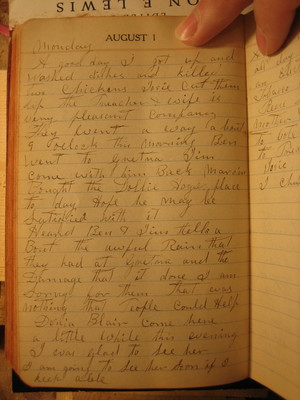 ON E LEWIS
AUGUST 1
Monday
A good day I got up and
washed dishes and killed
two Chickens Josie Cut them
up the Preacher & wife is
very pleasant Company
They went a way a bout
9 oclock this morning Ben
went to Gretna Jim
come with him Back Marvin
Bought the Dollie Hodges place
to day Hope he may be
Satisfied with it
Heard Ben & Jim tell a
Bout the awful Rain that
they had at Gretna and the
Damage that it done I am
Sorry for them that was
nothing that People Could Help
Blair come here
a little while this evening
I was glad to see her
I am going to see her Soon if I
keep able